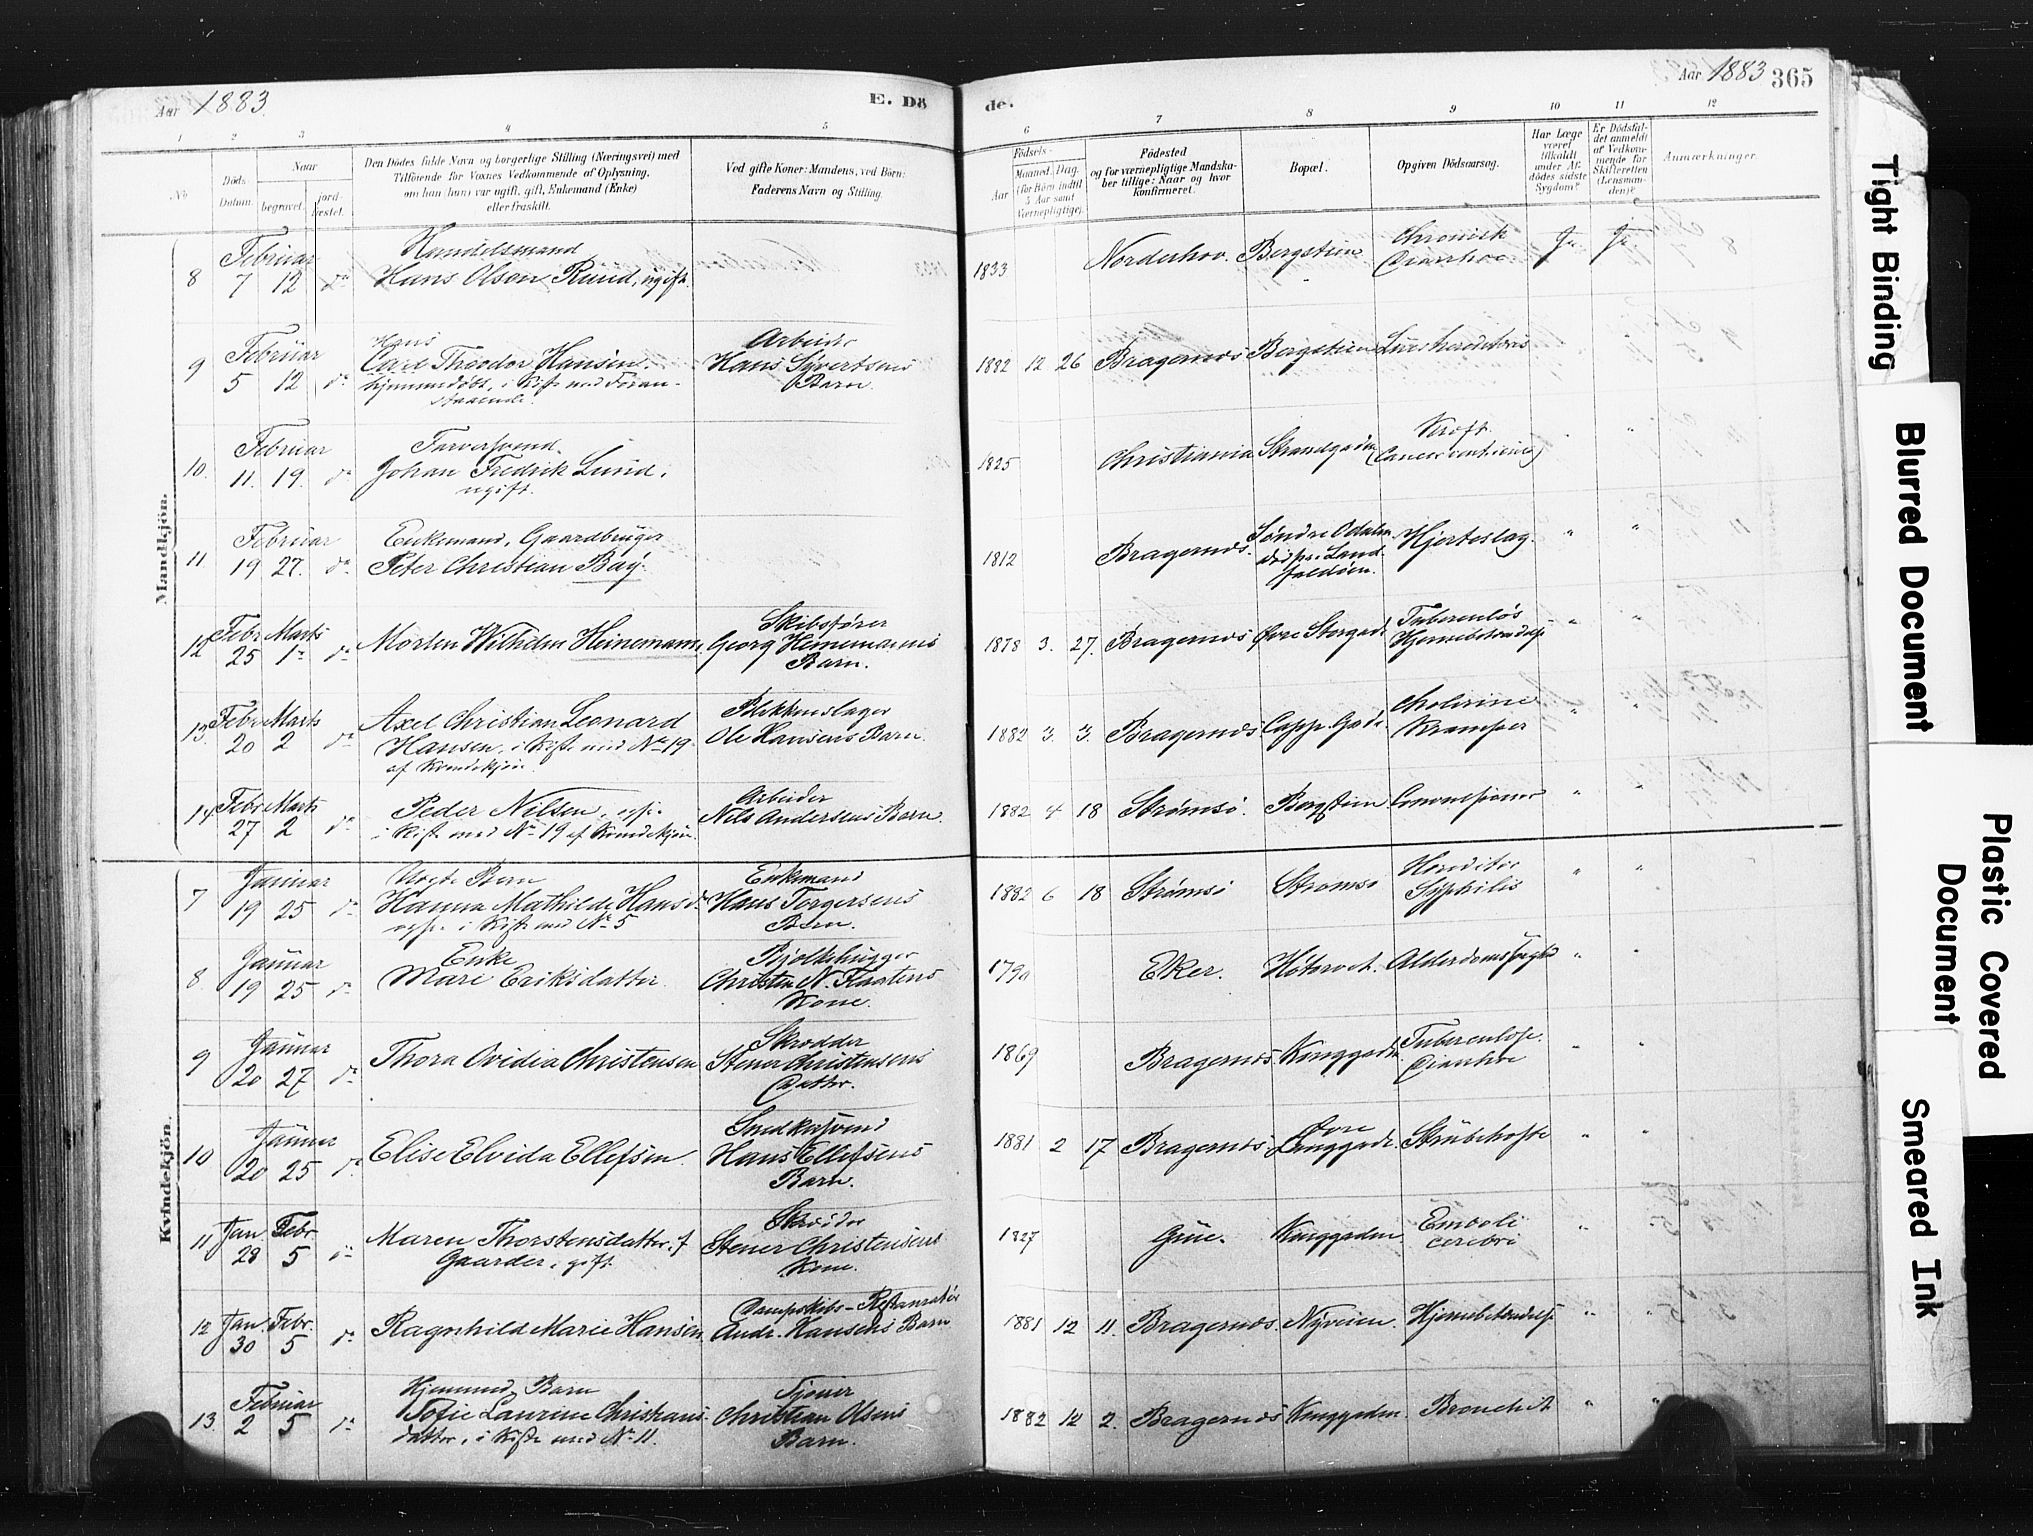 Aar 1883.
E. Dö
de.
Aar 1883 365
1 2 3 4 5 6 7 8 9 10 11 12
No
Döds-
Datum.
Naar
begravet.
jord-
fæstet.
Den Dödes fulde Navn og borgerlige Stilling (Næringsvei) med
Tilföiende för Voxnes Vedkommende af Oplysning,
om han (hun) var ugift, gift, Enkemand (Enke)
eller fraskilt.
Ved gifte Koner: Mandens, ved Börn:
Faderens Navn og Stilling.
Födsels-
Aar
Maaned. Dag.
(for Börn indtil
5 Aar samt
Værnepligtige).
Födested
og for værnepligtige Mandska-
ber tillige: Naar og hvor
konfirmeret.
Bopæl.
Opgiven Dödsaarsag.
Har Læge
været
tilkaldt
under Af-
dödes sidste
Sygdom?
Er Dödsfal-
det anmeldt
af Vedkom-
mende for
Skifteretten
(Lensman-
den)?
Anmærkninger.
Mandkjön.
8 Februar 7 12 do Handelsmand
Hans Olsen Ruud, ugift. 1833 Norderhov. Bergstien Chronisk
Diarrhoe. Ja Ja
9 Februar 5 12 do Hans
Carl Theodor Hansen.
hjemmedöbt, i Kiste med Foran-
staaende. Arbeider
Hans Sivertsens
Barn 1882 12 26 Bragernæs Bergstien
10. Februar 11. 19. do Farversvend
Johan Fredrik Lund.
ugift. 1825 Christiania Strandgaden Kræft
(Cancer ventriculi) " "
11 Februar 19 27. do Enkemand, Gaardbruger
Peter Christian Bay. 1812 Bragernæs. Søndre Odalen
Land-
faldöen. Hjerteslag. " "
12 Febr 25 Marts 1ste do Morten Wilhelm Heinemann, Skibsfører
Georg Heinemanns
Barn. 1878 3. 27. Bragernæs Øvre Storgade Tuberculøs
Hjernebetændelse " "
13. Febr 20 Marts 2 do Axel Christian Leonard
Hansen, i Kiste med No 19
af Kvindekjön. Blikkenslager
Ole Hansens Barn. 1882 3. 3. Bragernæs Capp. Gade. Cholerine
Kramper " "
14 Febr 27 Marts 2 do Peder Nilsen,
i Kiste med No 19 af Kvindekjön. Arbeider
Nils Andersens Barn. 1882 4 18 Strømsö. Bergstien. Convulsioner " "
Kvindekjön.
7 Januar 19 25 do Uægte Barn
Hanna Mathilde Hansdr
i Kiste med No 5 Enkemand
Hans Torgersens
Barn. 1882 6 18 Strømsö Strømsö Hereditær
Syphilis " "
8 Januar 19 25 do Enke
Mari Eriksdatter. Bjelkehugger
Christen N. Flaatens
Kone. Eker. Alderdomssvaghed " "
9 Januar 20 27 do Thora Ovidia Christensen Skrædder
Stener Christensens
Datter. 1869 Bragernæs Konggaden. Tuberculøse.
Diarrhoe " "
10 Januar 20 25 do Elise Elvida Ellefsen. Snedkersvend
Hans Ellefsens
Barn. 1881 2 17 Bragernæs Øvre
Langgade. Strubehoste " "
11 Jan. 28 Febr. 5 do Maren Thorstensdatter, f
Gaarder, gift. Skrædder
Stener Christensens
Kone. 1827 Grue. Konggaden. Emboli
cerebri "
12 Jan. 30 Febr. 5 do Ragnhild Marie Hansen, Dampskibs-Restauratör
Andr. Hansens Barn 1881 12 11. Bragernæs. Nyveien. Hjernebetændelse " "
13. Februar 2 5 do Hjemmed. Barn
Sofie Laurine Christians-
datter, i Kiste med No 11. Tjener
Christian Olsens
Barn. 1882 12 2. Bragernæs Konggaden. Bronchit " "
Tight Binding
Blurred Document
Plastic Covered
Document
Smeared Ink